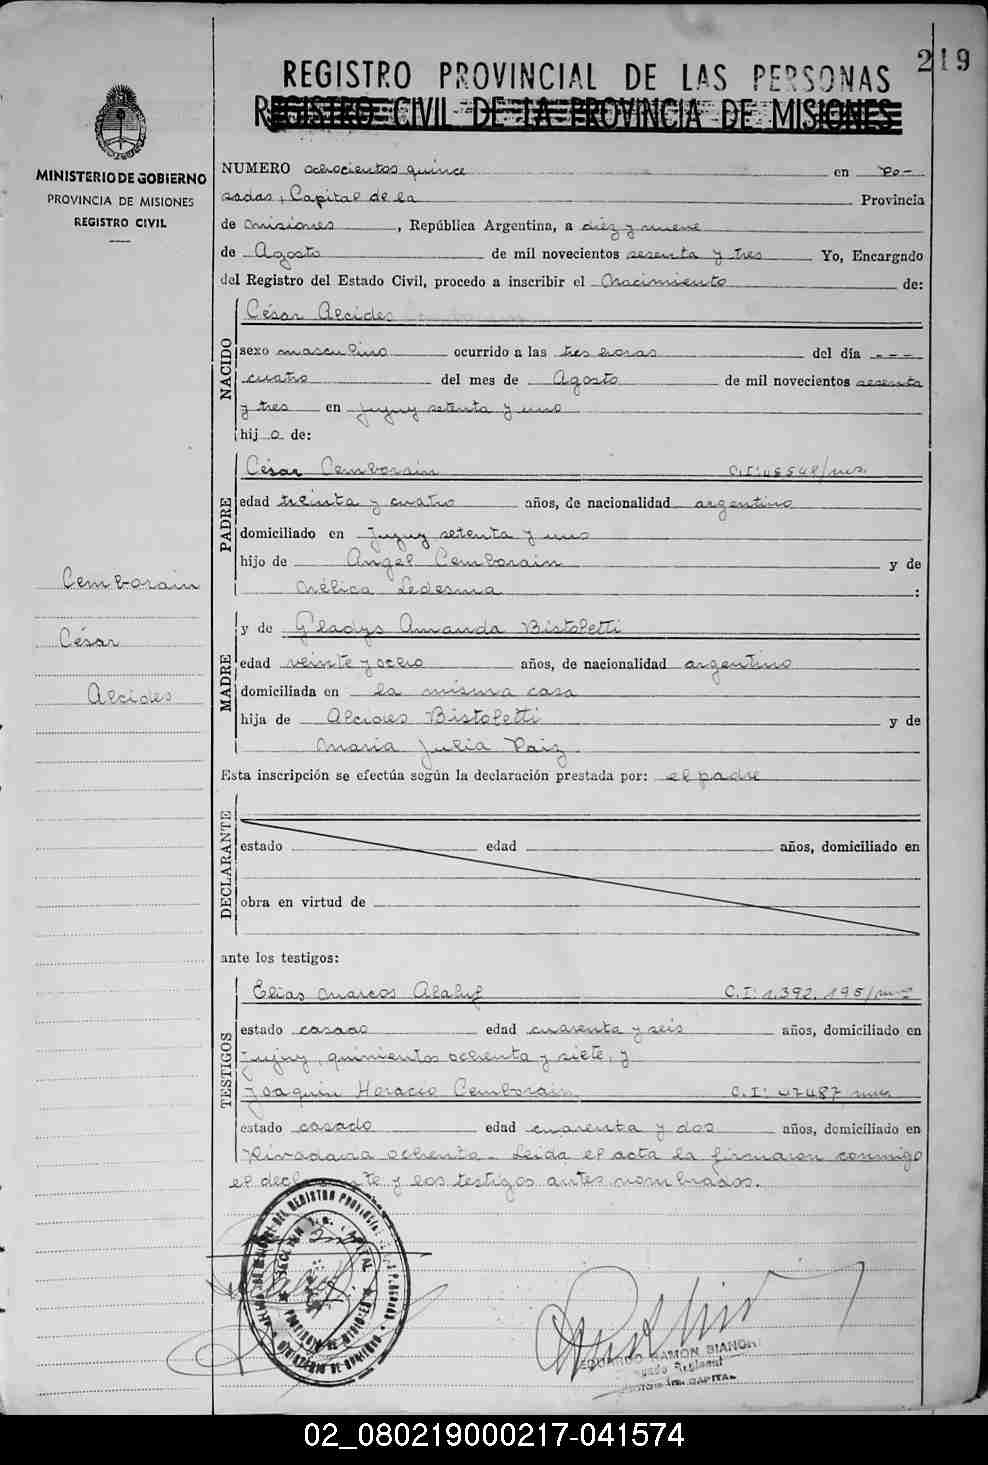 219
REGISTRO PROVINCIAL DE LAS PERSONAS
REGISTRO CIVIL DE LA PROVINCIA DE MISIONES
MINISTERIO DE GOBIERNO
PROVINCIA DE MISIONES
REGISTRO CIVIL
NUMERO ochocientos quince en Po-
sadas, Capital de la Provincia
de Misiones, República Argentina, a diez y nueve
de Agosto de mil novecientos sesenta y tres Yo, Encargado
del Registro del Estado Civil, procedo a inscribir el Nacimiento de:
NACIDO
César Alcides
sexo masculino ocurrido a las tres horas del día ---
cuatro del mes de Agosto de mil novecientos sesenta
y tres en Jujuy setenta y uno
hij o de:
PADRE
César Cemborain C.I:
edad treinta y cuatro años, de nacionalidad argentino
domiciliado en Jujuy setenta y uno
hijo de Angel Cemborain y de
Mélica Ledesma :
MADRE
y de Gladys Amanda Bistoletti
edad veinte y ocho años, de nacionalidad argentino
domiciliada en la misma casa
hija de Alcides Bistoletti y de
Maria Julia Paiz
Esta inscripción se efectúa según la declaración prestada por: el padre
DECLARANTE
estado edad años, domiciliado en
obra en virtud de
ante los testigos:
TESTIGOS
Elias Marcos Alaluf C.I: 1.392.195/
estado casado edad cuarenta y seis años, domiciliado en
Jujuy, quinientos ochenta y siete, y
Joaquin Horacio Cemborain C.I: 07487
estado casado edad cuarenta y dos años, domiciliado en
Rivadavia ochenta.- Leida el acta la firmaron conmigo
el declarante y los testigos antes nombrados.
Cemborain
César
Alcides
EDUARDO RAMON BIANCHI
CAPITAL
02_080219000217-041574